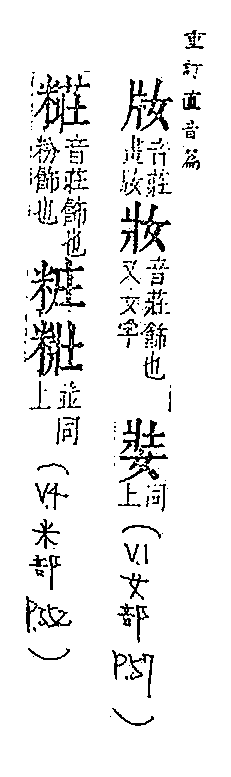 重訂直音篇
音莊 妝 音莊飾也 又女字 娤 同上 (V.1 女部 P.57)
糚 音莊飾也 粉飾也 粧 並同上 (V.4 米部 P.352)